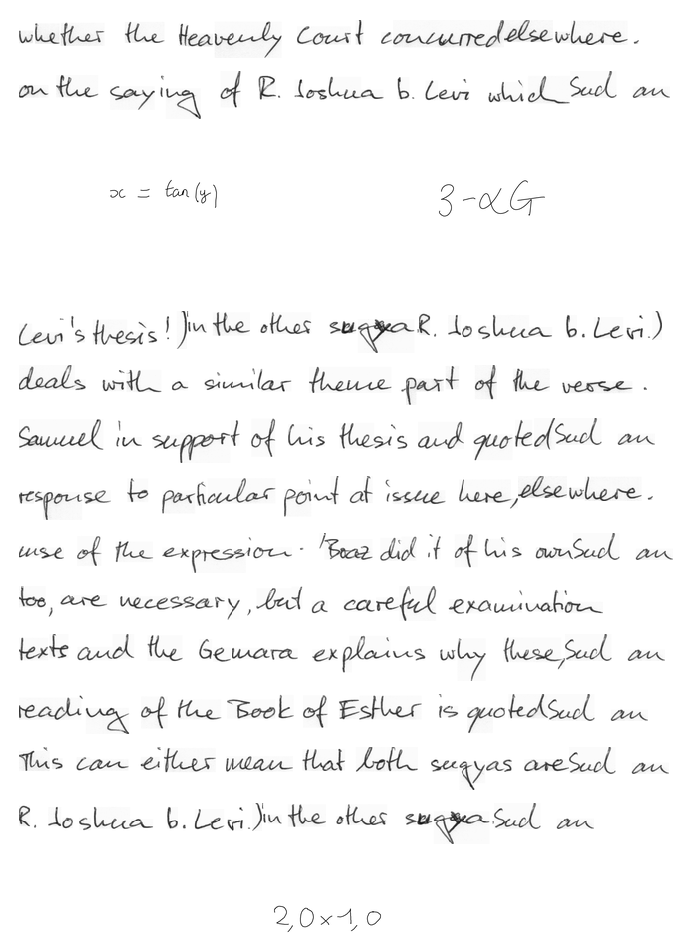 whether the Heavenly Court concurred elsewhere.
on the saying of R. Joshua b. Levi which Such an
x = tan(y) 3-αG
Levi's thesis!) in the other sugya R. Joshua b. Levi.)
deals with a similar theme part of the verse.
Samuel in support of his thesis and quoted Such an
response to particular point at issue here, elsewhere.
use of the expression. 'Boaz did it of his own Such an
too, are necessary, but a careful examination
texts and the Gemara explains why these, Such an
reading of the Book of Esther is quoted Such an
This can either mean that both sugyas are Such an
R. Joshua b. Levi.) in the other sugya. Such an
2,0×1,0